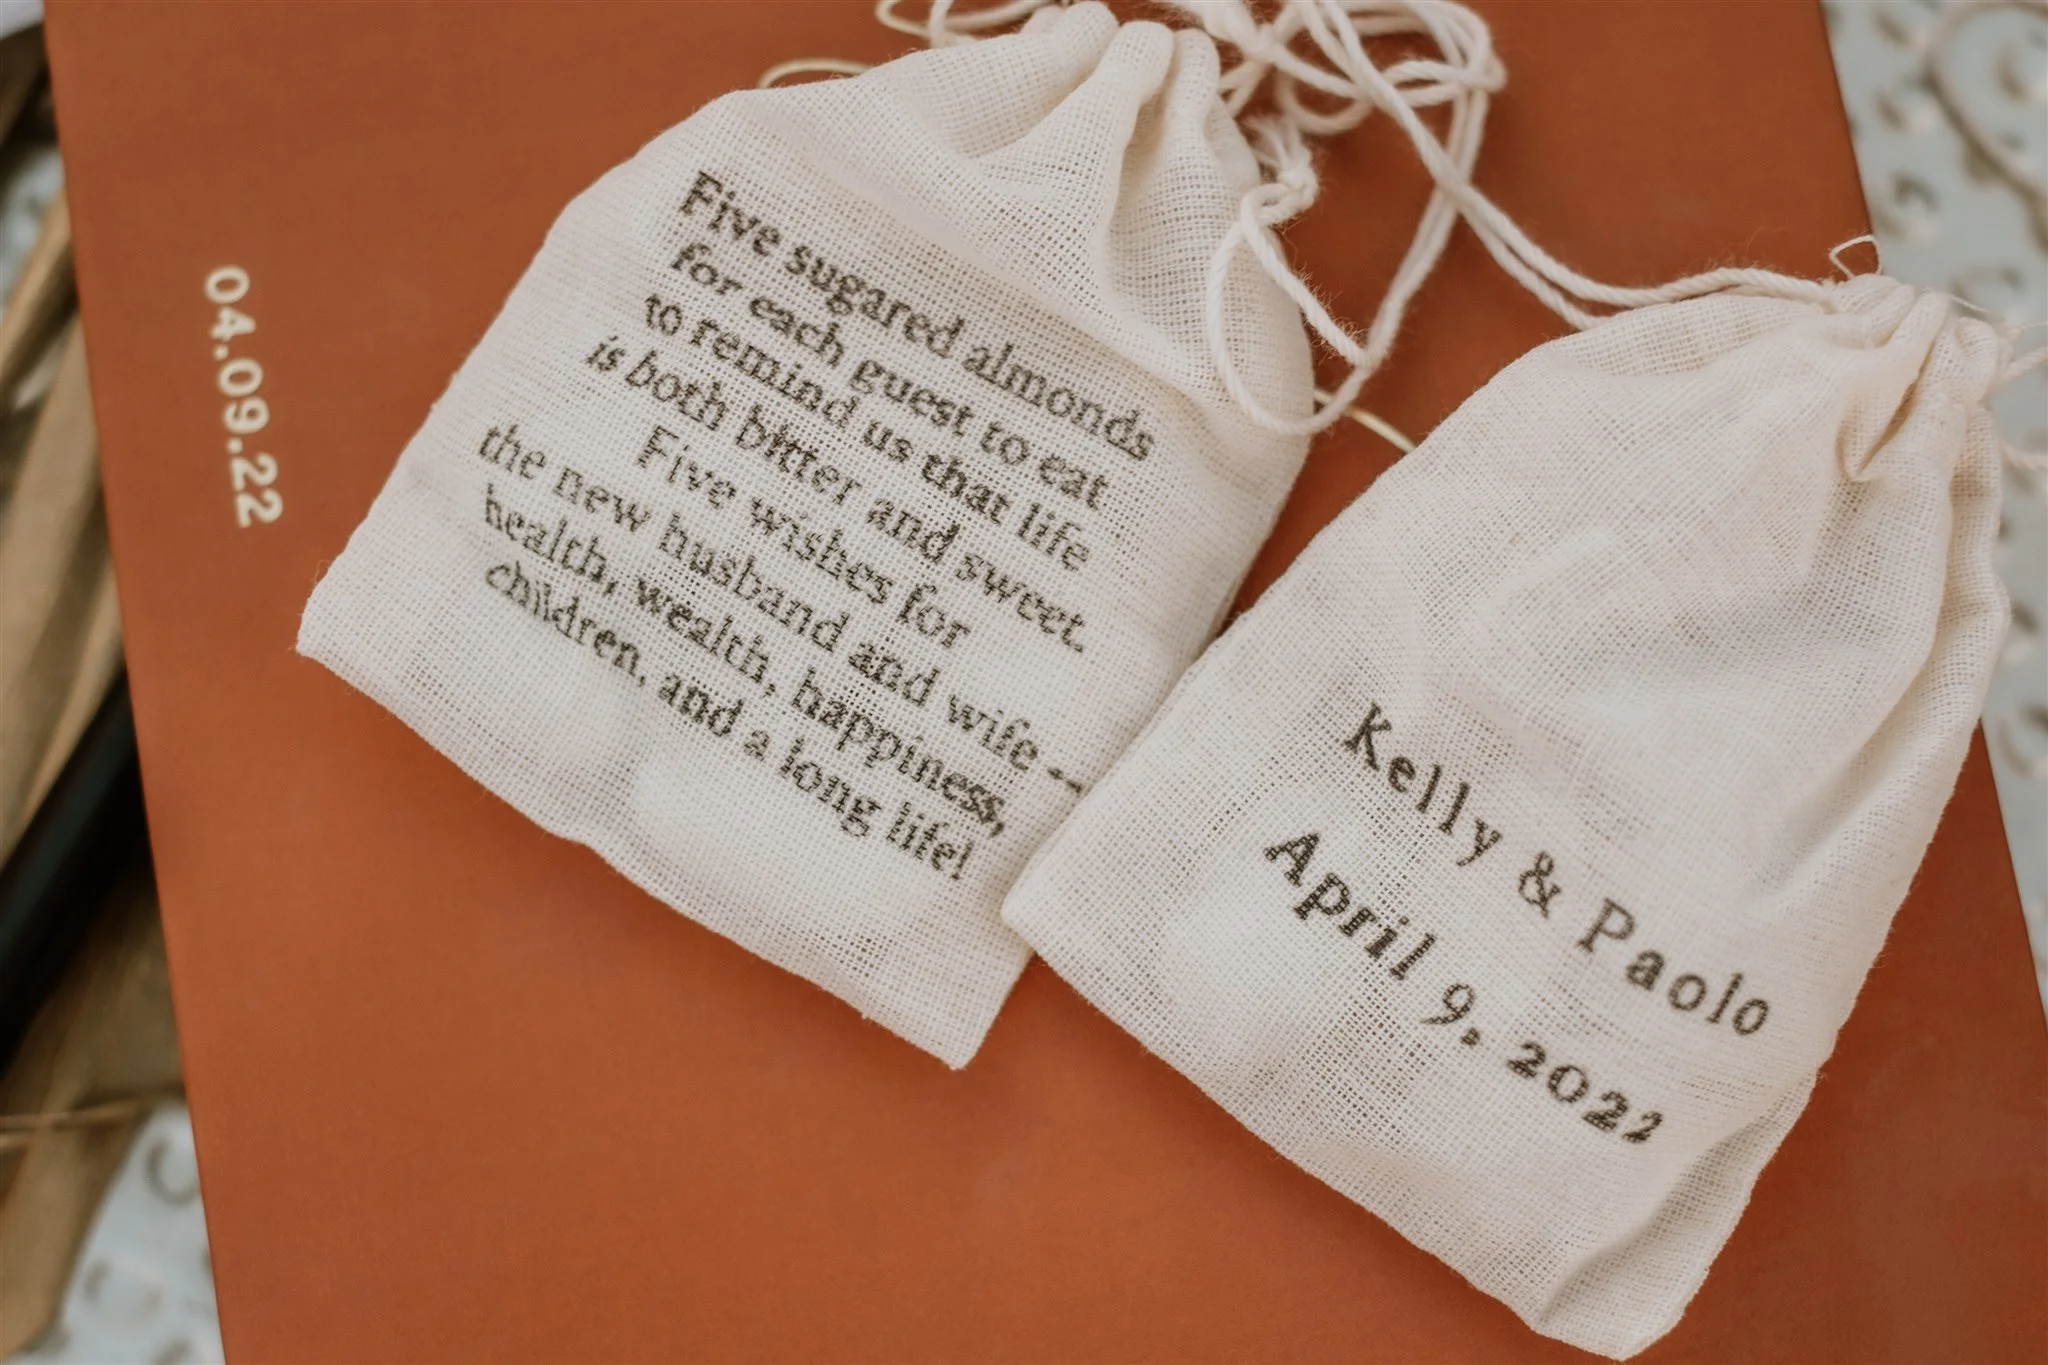 04.09.22
Five sugared almonds
for each guest to eat
to remind us that life
is both bitter and sweet.
Five wishes for
the new husband and wife --
health, wealth, happiness,
children, and a long life!
Kelly & Paolo
April 9, 2022